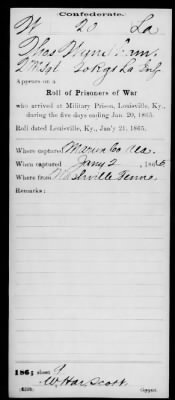 Confederate.
W 20 La
Thos
Q M Sgt 20 Regt La Inf
Appears on a
Roll of Prisoners of War
who arrived at Military Prison, Louisville, Ky.,
during the five days ending Jan. 20, 1865.
Roll dated Louisville, Ky., Jan'y 21, 1865.
Where captured Marion Co
When captured Jany 2, 1865
Where from Nashville Tenn
Remarks:
1865 sheet 9
Scott
Copyist.